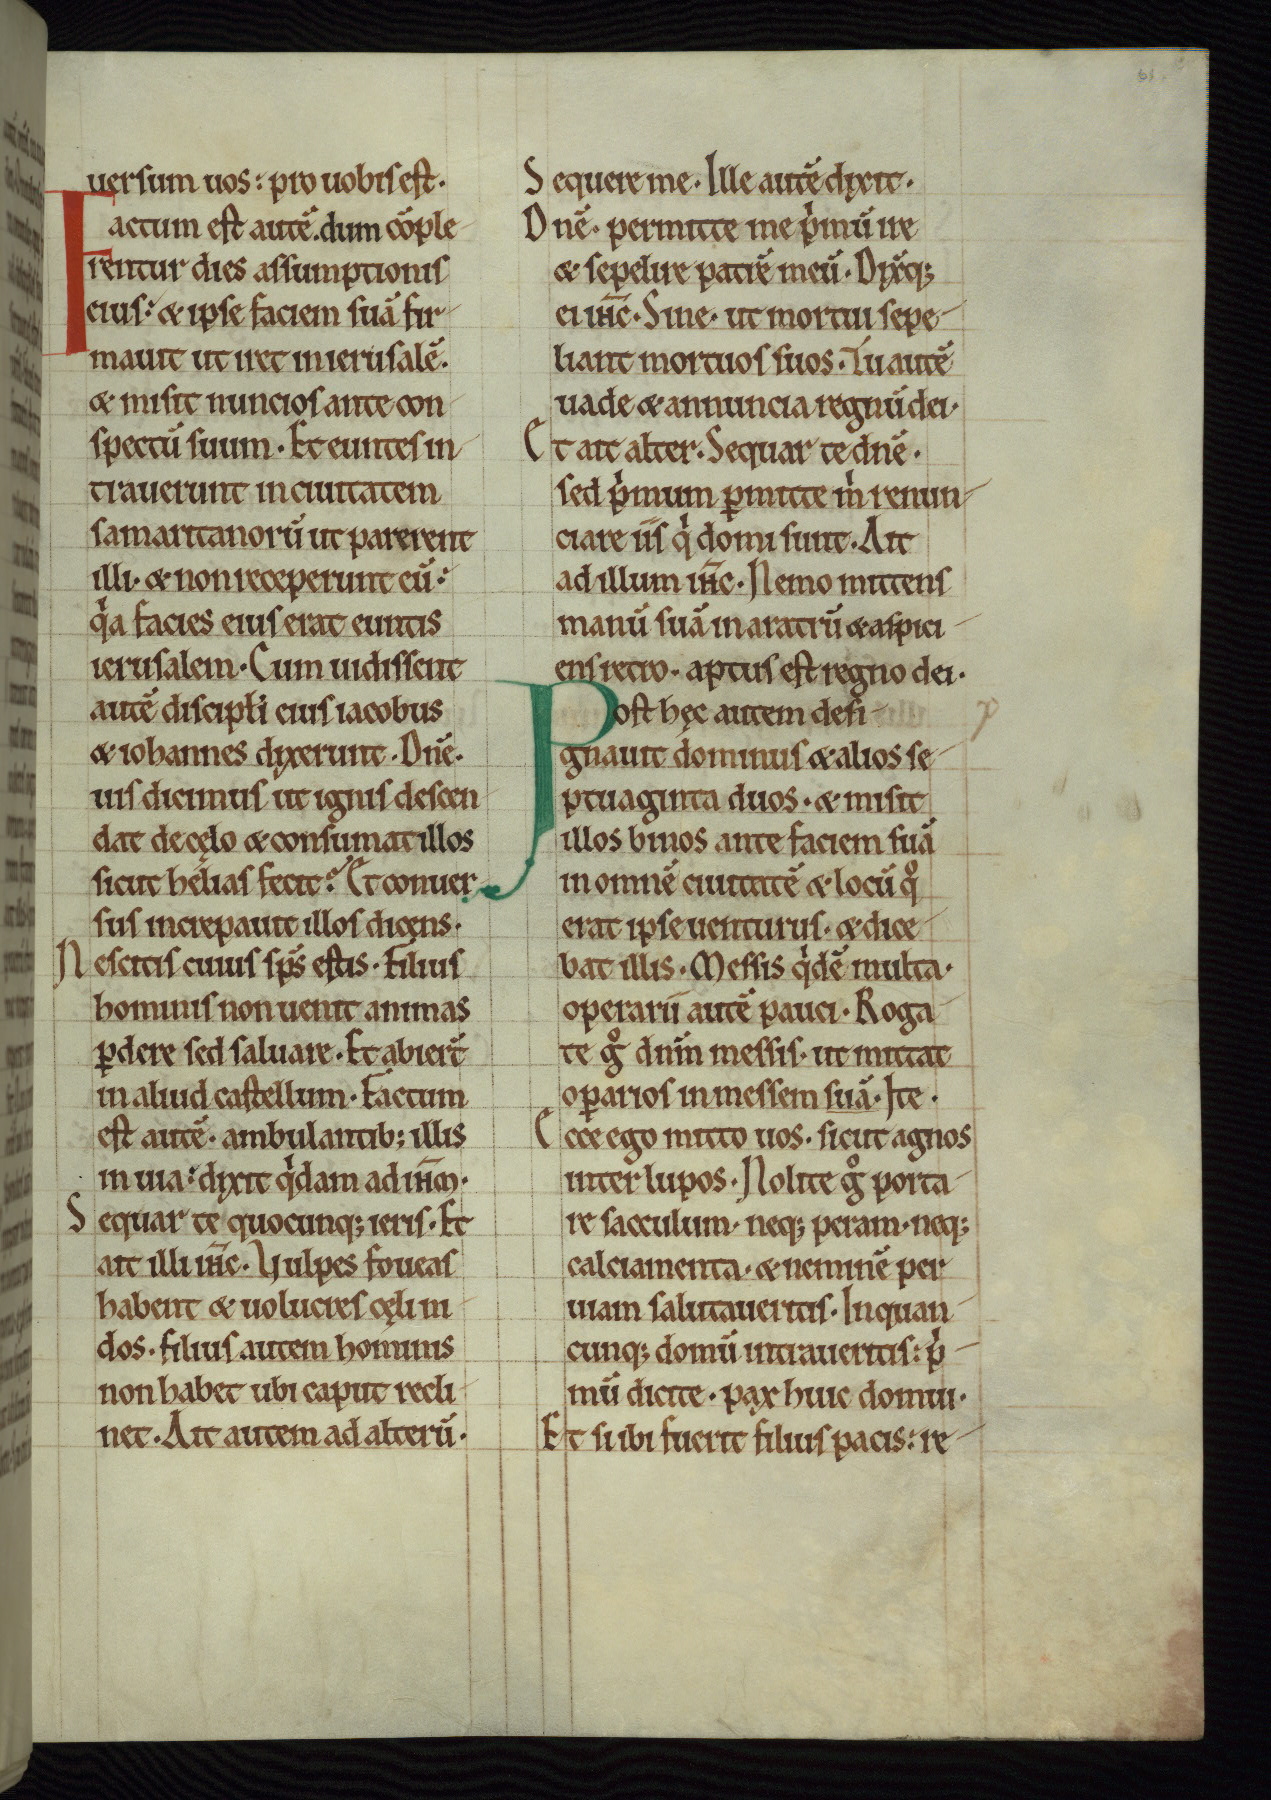 uersum uos: pro uobis est.
Factum est autē. dum cōple
rentur dies assumptionis
eius: & ipse faciem suā fir
mauit ut iret in ierusalē.
& misit nuncios ante con
spectū suum. Et euntes in
trauerunt in ciuitatem
samaritanorū ut parerent
illi. & non receperunt eū:
qͥa facies eius erat euntis
ierusalem. Cum uidissent
autē discipłi eius iacobus
& iohannes dixerunt. Dn̄e.
uis dicimus ut ignis descen
dat de cęlo & consumat illos
sicut helias fecit? Et conuer
sus increpauit illos dicens.
Nescitis cuius sp̄s estis. Filius
hominis non uenit animas
ꝑdere sed saluare. Et abiert̄
in aliud castellum. Factum
est autē. ambulantib; illis
in uia: dixit qͥdam ad ih̄m.
Sequar te quocunq; ieris. Et
ait illi ih̄c. Vulpes foueas
habent & uolucres cęli ni
dos. filius autem hominis
non habet ubi caput recli
net. Ait autem ad alterū.
Sequere me. Ille autē dixit.
Dn̄e. permitte me pͥmū ire
& sepelire patrē meū. Dixitq;
ei ih̄c. Sine. ut mortui sepe
liant mortuos suos. Tu autē
uade & annuncia regnū dei.
Et ait alter. Sequar te dn̄e.
sed pͥmum ꝑmitte mͥ renun
ciare iis qͥ domi sunt. Ait
ad illum ih̄c. Nemo mittens
manū suā in aratrū & aspici
ens retro. aptus est regno dei.
Post hęc autem desi
gnauit dominus & alios se
ptuaginta duos. & misit
illos binos ante faciem suā
in omnē ciuitatē & locū qͦ
erat ipse uenturus. & dice
bat illis. Messis qͥdē multa.
operarii autē pauci. Roga
te gͦ dn̄m messis. ut mittat
oꝑarios in messem suā. Ite.
Ecce ego mitto uos. sicut agnos
inter lupos. Nolite gͦ porta
re sacculum. neq; peram. neq;
calciamenta. & neminē per
uiam salutaueritis. In quan
cunq; domū intraueritis: pͥ
mū dicite. pax huic domui.
Et si ibi fuerit filius pacis: re